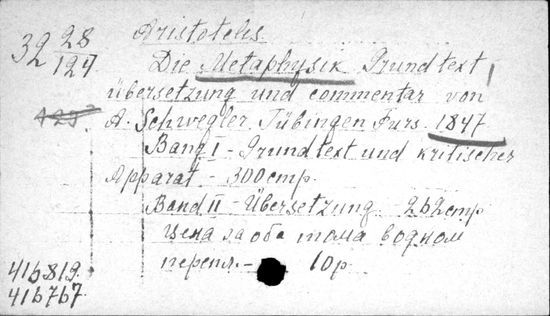 32 28/124
Aristotels
Die Metaphysik Grundtext,
übersetzung und commentar von
125.
A. Schwegler Tübingen Furs. 1847
Band I - Grundtext und kritischer
Apparat - 300 стр.
Band II - Übersetzung 262 стр
Цена за оба тома в одном
перепл. - 10 р
416819.
416767.